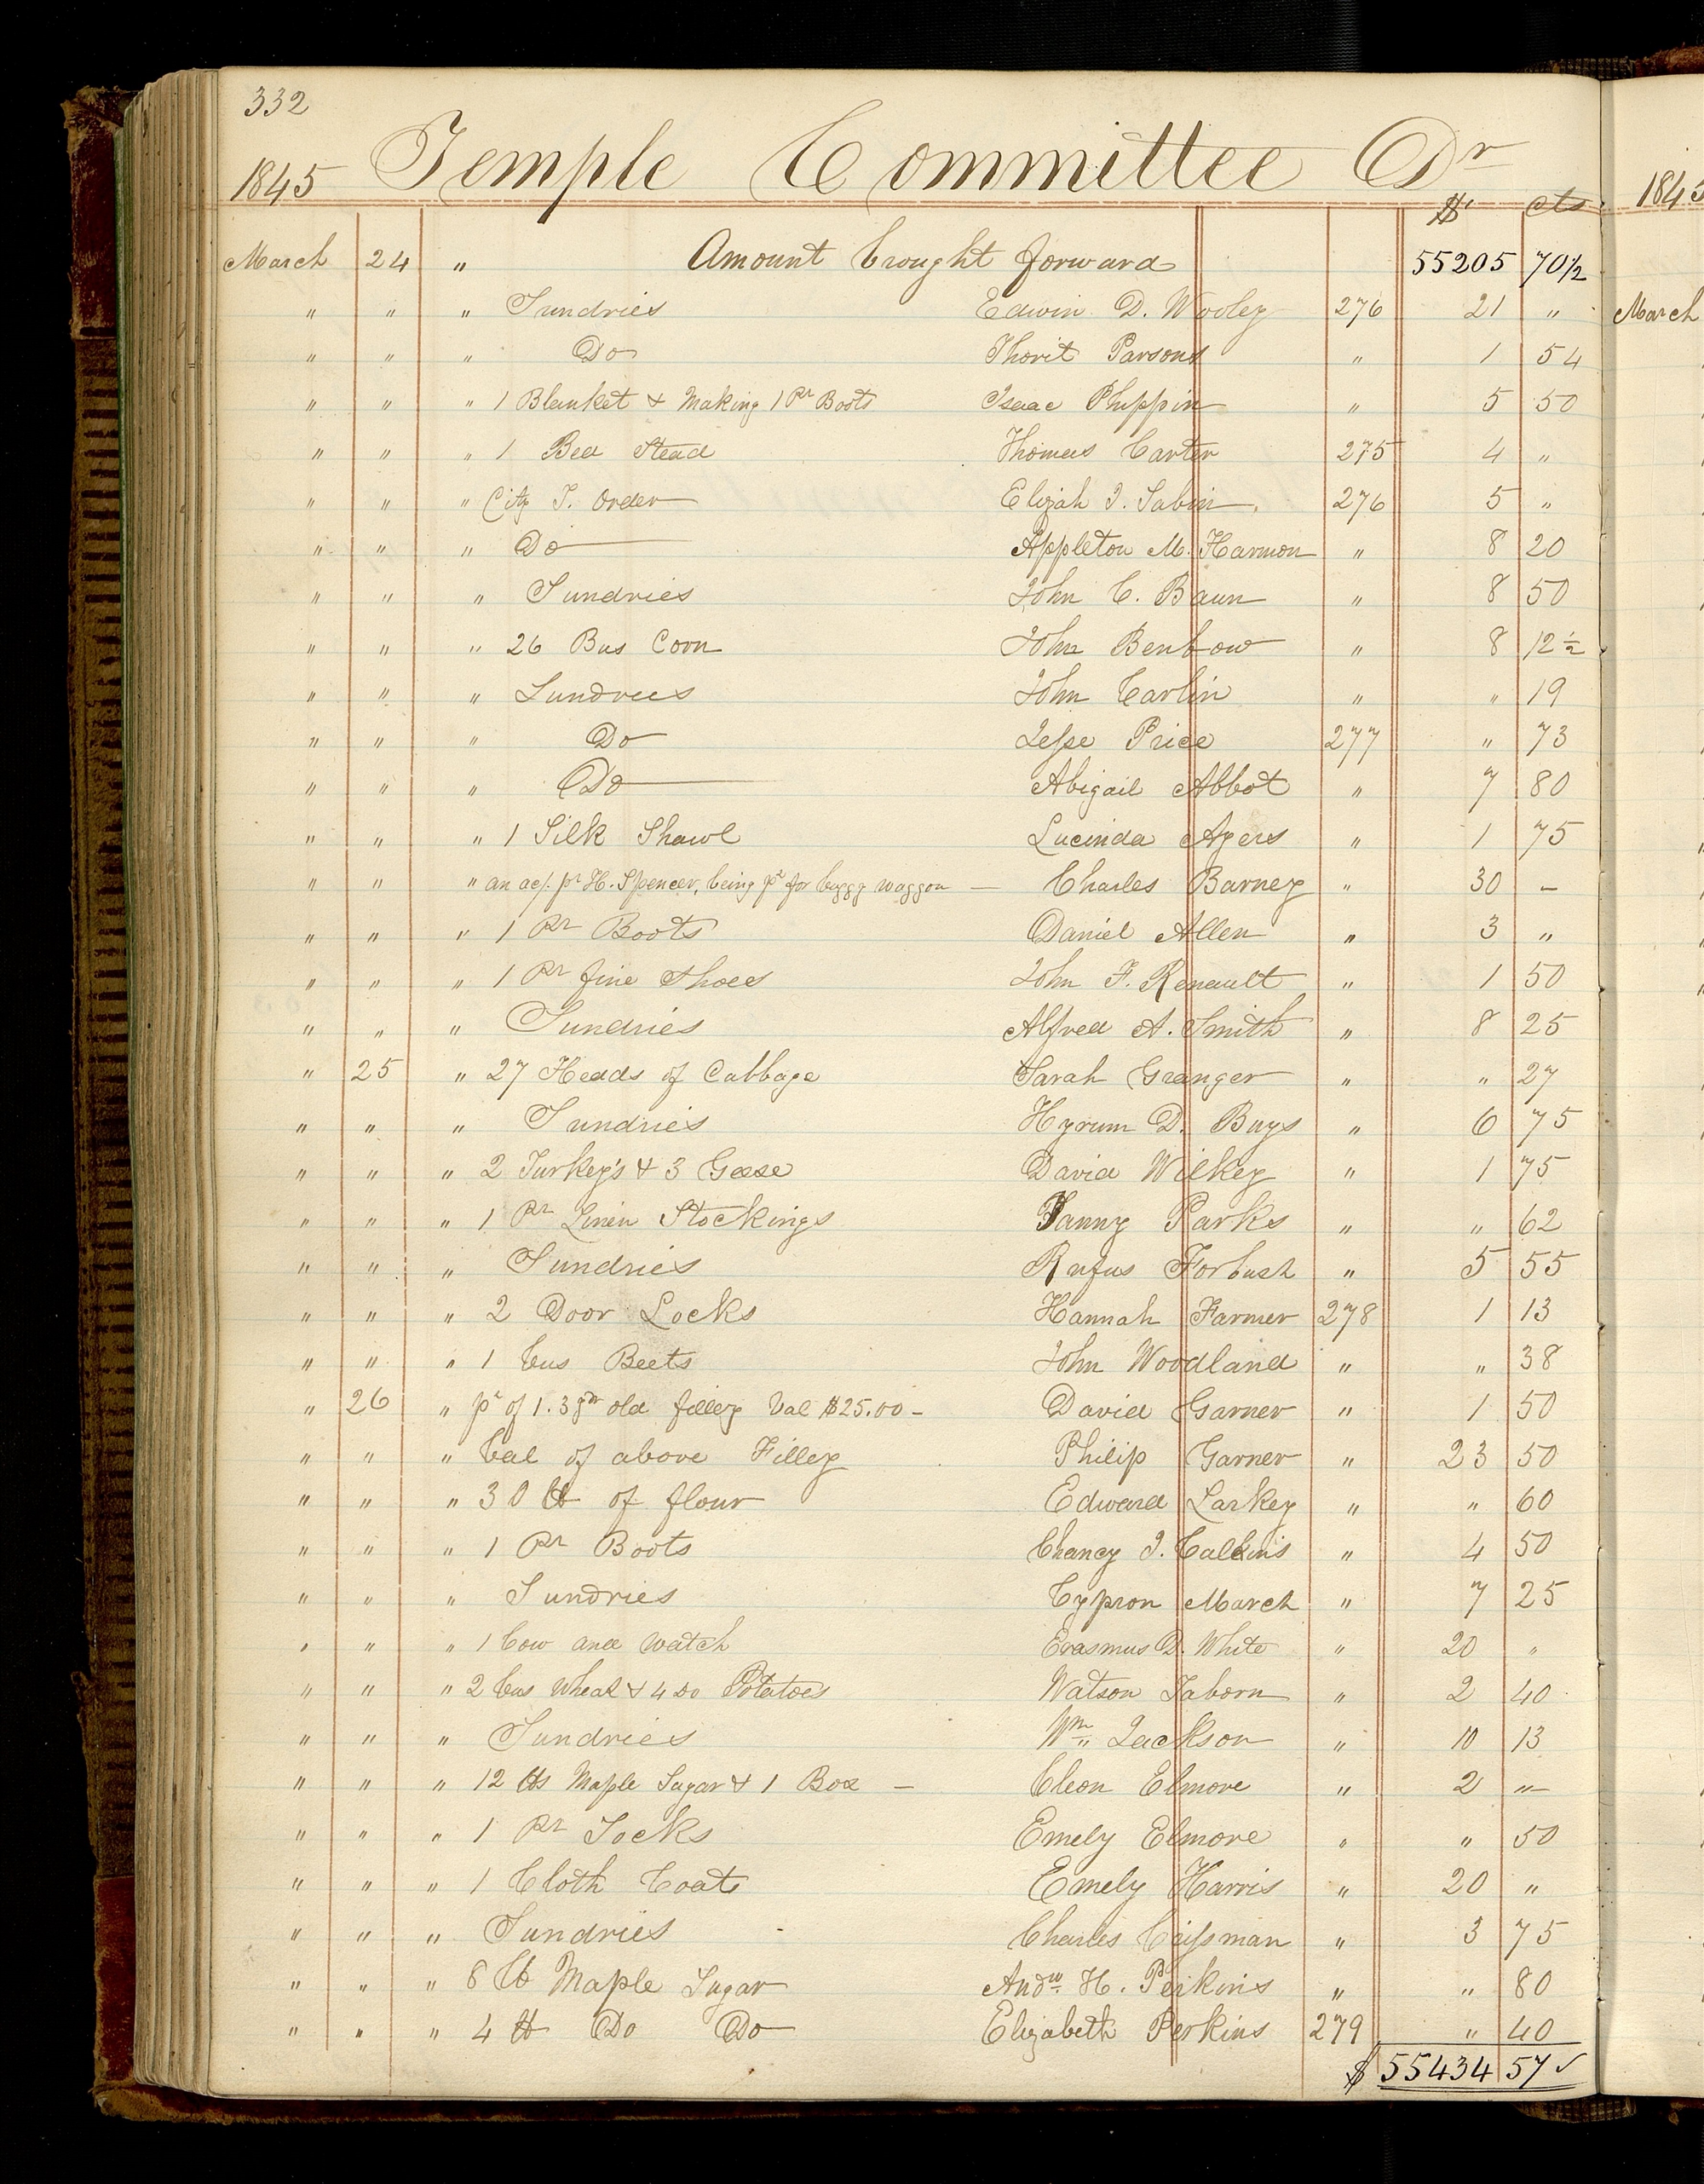 332
1845 Temple Committee Dr
$ cts
March 24 " Amount brought forward 55205 70½
" " " Sundries Edwin D. Wooley 276 21 "
" " " Do Thorit Parsons " 1 54
" " " 1 Blanket & Making 1 Pr Boots Isaac Phippin " 5 50
" " " 1 Bed Stead Thomas Carter 275 4 "
" " " City T. Order Elijah J. Sabin 276 5 "
" " " Do Appleton M. Harmon " 8 20
" " " Sundries John C. Baun " 8 50
" " " 26 Bus Corn John Benbow " 8 12½
" " " Sundries John Carlin " " 19
" " " Do Jesse Price 277 " 73
" " " Do Abigail Abbot " 7 80
" " " 1 Silk Shawl Lucinda Ayers " 1 75
" " " an ac/. pr H. Spencer, being pt for buggy waggon — Charles Barney " 30 –
" " " 1 Pr Boots Daniel Allen " 3 "
" " " 1 Pr fine Shoes John F. Renault " 1 50
" " " Sundries Alfred A. Smith " 8 25
" 25 " 27 Heads of Cabbage Sarah Granger " " 27
" " " Sundries Hyrum D. Buys " 6 75
" " " 2 Turkey's & 3 Geese David Wilkey " 1 75
" " " 1 Pr Linen Stockings Fanny Parks " " 62
" " " Sundries Rufus Forbush " 5 55
" " " 2 Door Locks Hannah Farmer 278 1 13
" " " 1 bus Beets John Woodland " " 38
" 26 " pt of 1. 3 yr old filley Val $25.00 – David Garner " 1 50
" " " bal of above Filley Philip Garner " 23 50
" " " 30 lb of flour Edward Larkey " " 60
" " " 1 Pr Boots Chancy J. Calkins " 4 50
" " " Sundries Cypron March " 7 25
" " " 1 Cow and Watch Erasmus D. White " 20 "
" " " 2 bus Wheat & 4 Do Potatoes Watson Taborn " 2 40
" " " Sundries Wm Jackson " 10 13
" " " 12 lbs Maple Sugar & 1 Box – Cleon Elmore " 2 "
" " " 1 Pr Socks Emely Elmore " " 50
" " " 1 Cloth Coat Emely Harris " 20 "
" " " Sundries Charles Crissman " 3 75
" " " 8 lb Maple Sugar Andw H. Perkins " " 80
" " " 4 lb Do Do Elizabeth Perkins 279 " 40
$ 55434 57 ✓
1845
March